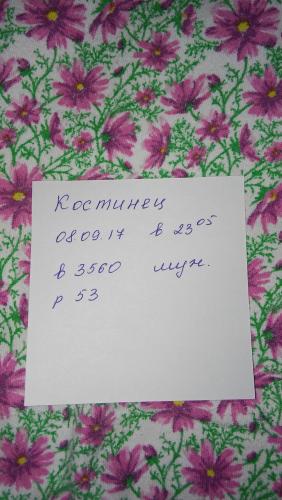 Костинец
08.09.17 в 23⁰⁵
в 3560 муж.
р 53